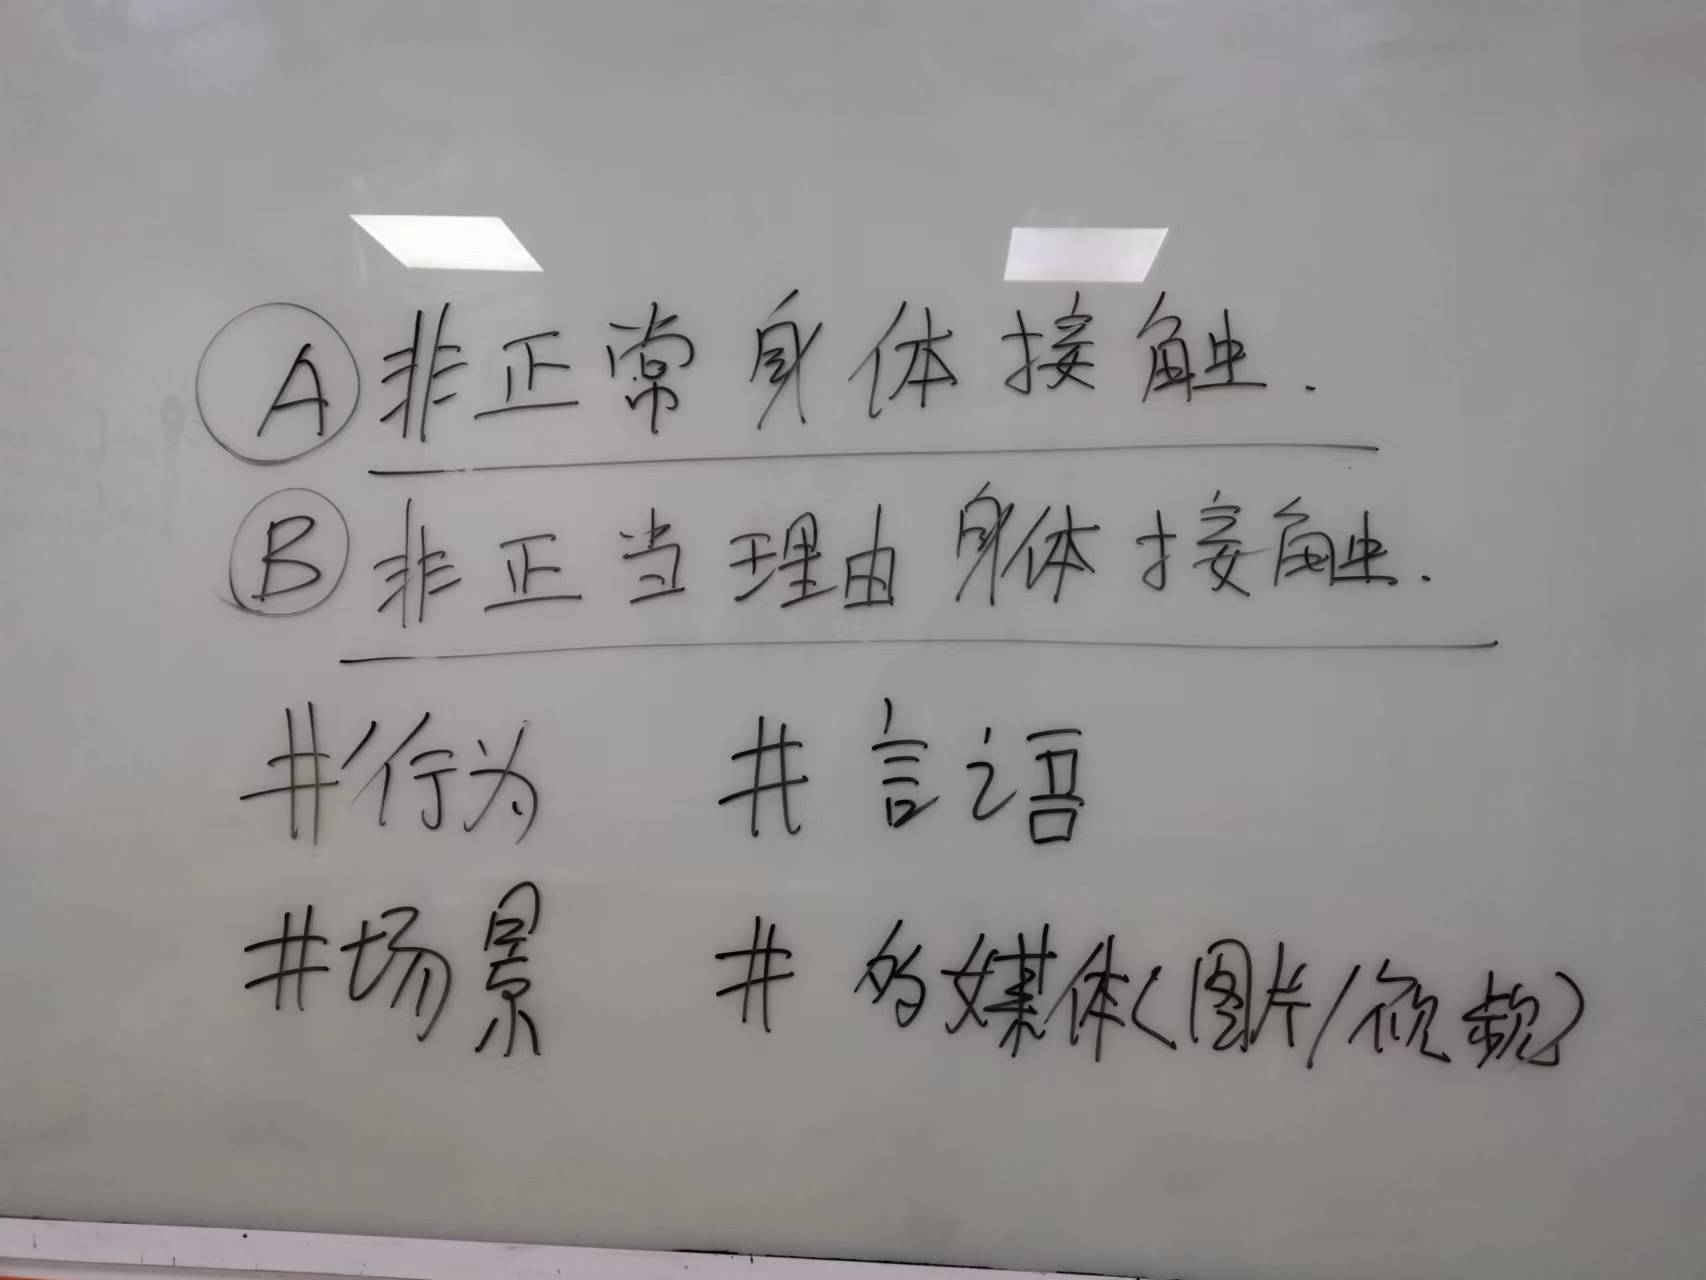 A 非正常身体接触.
B 非正当理由身体接触.
#行为 #言语
#场景 #的媒体(图片/视频)